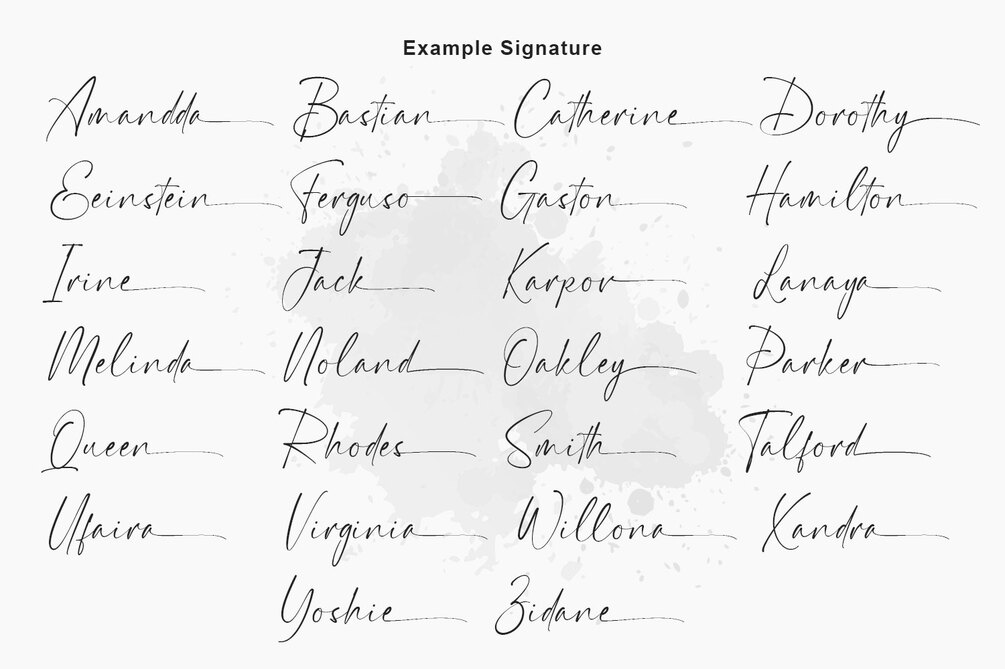 Example Signature
Amandda Bastian Catherine Dorothy
Eeinstein Ferguso Gaston Hamilton
Irine Jack Karpov Lanaya
Melinda Noland Oakley Parker
Queen Rhodes Smith Talford
Ufaira Virginia Willona Xandra
Yoshie Zidane